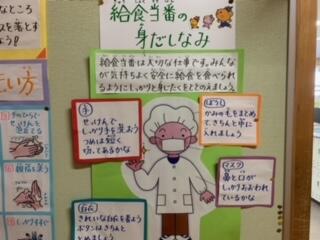 なところ
スを落とす
しょう?
い方
給食当番の
身だしなみ
給食当番は大切な仕事です。みんな
が気持ちよく安全に給食を食べられ
るようにしっかりと身じたくをととのえましょう。
手
せっけんで
しっかり手を洗おう
つめは短く
切ってあるかな
ぼうし
かみの毛をまとめ
て、きちんと中に入
れましょう
マスク
鼻と口が
しっかりおおわれ
ているかな
白衣
きれいな白衣を着よう
ボタンはきちんと
とめましょう